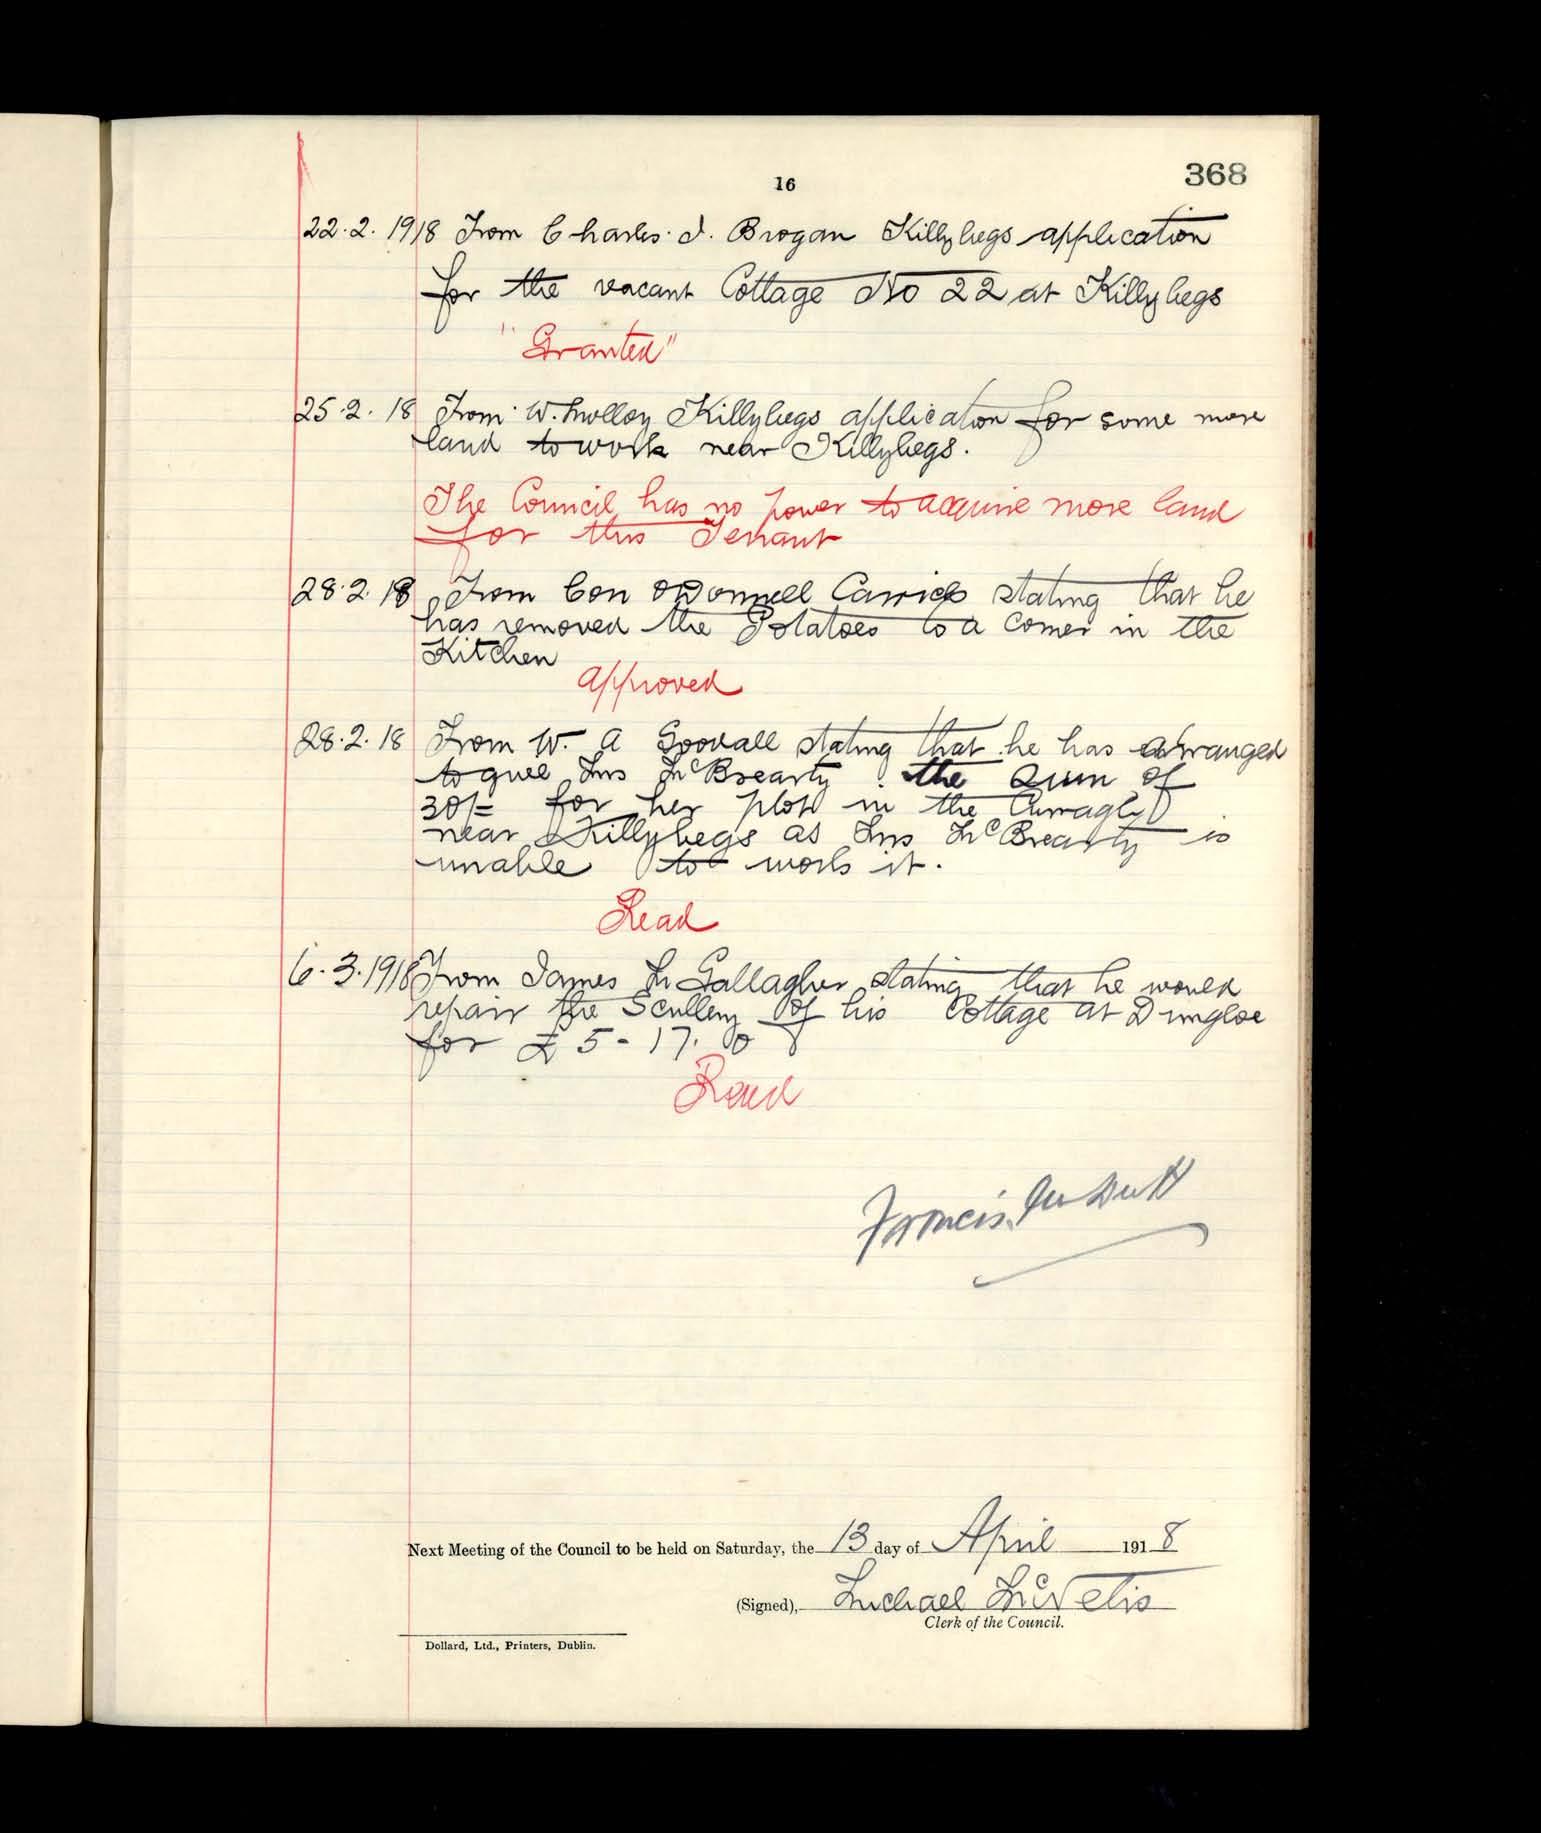 16
368
22.2.1918 From Charles. J. Brogan Killybegs application
for the vacant Cottage No 22 at Killybegs
"Granted"
25.2.18 From W. Molloy Killybegs application for some more
land to work near Killybegs.
The Council has no power to acquire more land
for this Tenant
28.2.18 From Con O'Donnell Carrick stating that he
has removed the Potatoes to a corner in the
Kitchen
approved
28.2.18 From W. A Goodall stating that he has arranged
to give Mrs McBrearty the sum of
30/= for her plot in the Curragh
near Killybegs as Mrs McBrearty is
unable to work it.
Read
6.3.1918 From James M Gallagher stating that he would
repair the Scullery of his Cottage at Dungloe
for £5-17.0
Read
Francis
Next Meeting of the Council to be held on Saturday, the 13 day of April 1918
(Signed), Michael McNelis
Clerk of the Council.
Dollard, Ltd., Printers, Dublin.